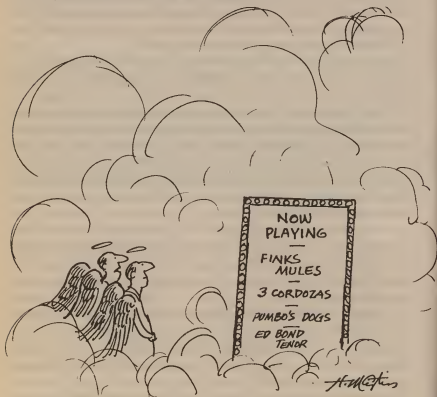 NOW
PLAYING
FINKS
MULES
3 CORDOZAS
POMBO'S DOGS
ED BOND
TENOR
H. Martin